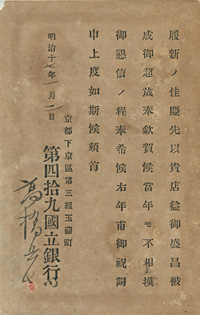 履新ノ佳慶先以貴店益御盛昌被
成御超歳奉欽賀候當年モ不相換
御懇信ノ程奉希候右年甫御祝詞
申上度如斯候頓首
明治十七年一月一日
京都下京區第三組玉蔵町
第四拾九國立銀行